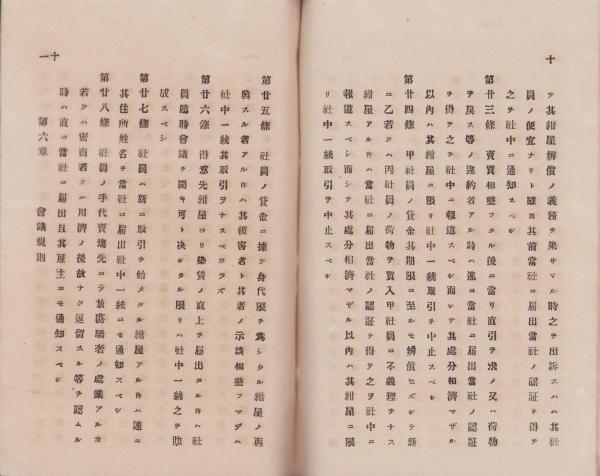 十
テ其紺屋辨償ノ義務ヲ果サマル時之ヲ出訴スハハ其社
員ノ便宜ナリト雖𪜈其前當社ニ届出當社ノ認証ヲ得テ
之ヲ社中ニ通知スベシ
第廿三條 賣買相整フタル後ニ當リ直引ヲ求メ又ハ荷物
ヲ戻ス等ノ違約者アル時ハ速ニ當社ニ届出當社ノ認証
ヲ得テ之ヲ社中ニ報道スベシ而シテ其處分相濟マザル
以內ハ其紺屋ニ限リ社中一統取引ヲ中止スベシ
第廿四條 甲社員ノ貸金其期限ニ至ルモ辨償セズシテ新
ニ乙若クハ丙社員ノ荷物ヲ買入甲社員ニ不義理ヲナス
紺屋アル𪜈ハ當社ニ届出當社ノ認証ヲ得テ之ヲ社中ニ
報道スベシ而シテ其處分相濟マザル以內ハ其紺屋ニ限
リ社中一統取引ヲ中止スベシ
十一
第廿五條 社員ノ貸金ニ據テ身代限ヲ爲シタル紺屋ノ再
興スル者アル𪜈ハ其被害者ト其者ノ示談相整フマデハ
社中一統其取引ヲナスベカラズ
第廿六條 得意先紺屋ヨリ染賃ノ直上ヲ届出タル𪜈ハ社
員臨時會議ヲ開キ可ト決シタル限リハ社中一統之ヲ助
成スベシ
第廿七條 社員ハ新ニ取引ヲ始メタル紺屋アル𪜈ハ速ニ
其住所姓名ヲ當社ニ届出社中一統ニモ通知スベシ
第廿八條 社員ノ手代賣塲先ニテ放蕩驕奢ノ處業アルカ
若クハ密商若クハ用濟ノ後故ナク逗留スル等ヲ認ムル
時ハ直ニ當社ニ届出且其雇主ニモ通知スベシ
第六章 會議規則